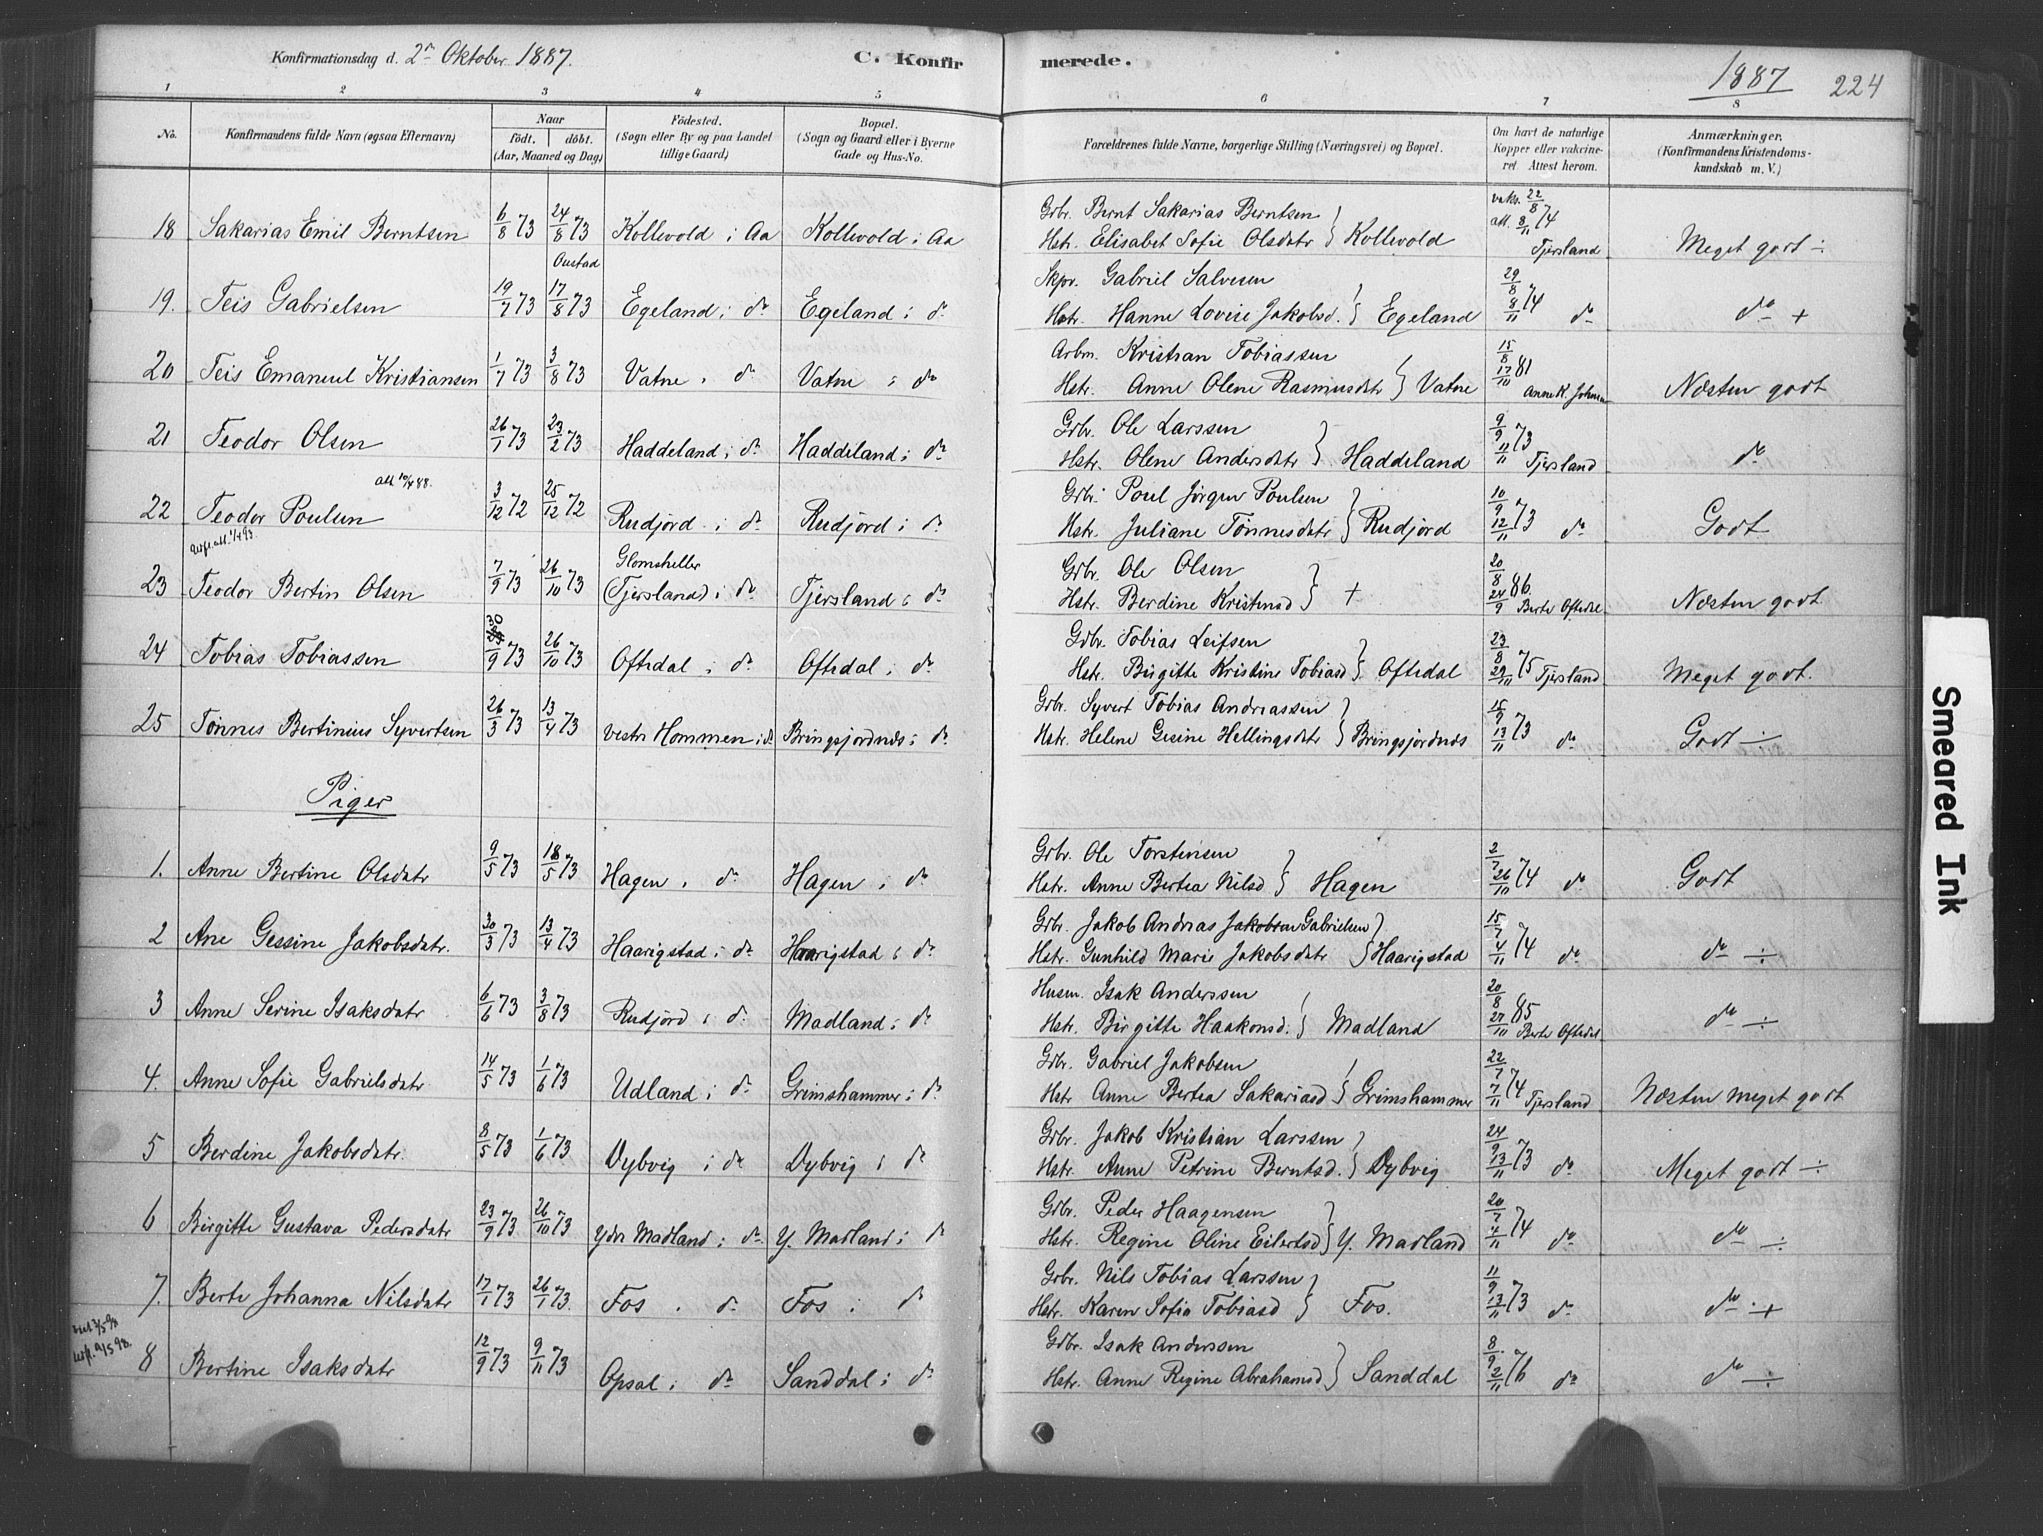 Konfirmationsdag d. 2n Oktober 1887.
C. Konfirmerede.
1887
224
1 2 3 4 5 6 7 8
No.
Konfirmandens fulde Navn (ogsaa Efternavn)
Naar
födt. döbt.
(Aar, Maaned og Dag)
Födested.
(Sogn eller By og paa Landet
tillige Gaard)
Bopæl.
(Sogn og Gaard eller i Byerne
Gade og Hus-No.
Forældrenes fulde Navne, borgerlige Stilling (Næringsvei) og Bopæl.
Om havt de naturlige
Kopper eller vakcineret
Attest herom.
Anmærkninger.
(Konfirmandens Kristendomskundskab m. V.)
18 Sakarias Emil Berntsen 6/8 73 24/8 73 Kollevold i Aa Kollevold i Aa
Grb. Bernt Sakarias Berntsen
Hstr. Elisabet Sofie Olsdatr } Kollevold vaks. 22/8 att. 8/11 74 Tjersland Meget godt ÷
Oustad
19. Teis Gabrielsen 19/7 73 17/8 73 Egeland i do Egeland i do
Skpr. Gabriel Salvesen
Hstr. Hanne Lovise Jakobsd. } Egeland 29/8 8/11 74 do do +
20 Teis Emanuel Kristiansen 1/7 73 3/8 73 Vatne i do Vatne i do
Arbm. Kristian Tobiassen
Hstr. Anne Olene Rasmusdatr } Vatne 15/8 17/10 81 Anne K. Næsten godt
21 Teodor Olsen 26/1 73 23/2 73 Haddeland i do Haddeland i do
Grb. Ole Larssen
Hstr. Olene Andersdatr } Haddeland 9/9 11/11 73 Tjersland do
att 10/4 88.
22 Teodor Poulsen 3/12 72 25/12 72 Rudjord i do Rudjord i do
Grb. Poul Jørgen Poulsen
Hstr. Juliane Tønnesdatr } Rudjord 10/9 12/11 73 do Godt
23 Teodor Bertin Olsen 7/9 73 26/10 73 Glomsheller (Tjersland) i do Tjersland i do
Grb. Ole Olsen
Hstr. Berdine Kristensd } + 20/8 24/9 86. Berte Oftedal Næsten godt
24 Tobias Tobiassen 30/9 73 26/10 73 Oftedal i do Oftedal i do
Grb. Tobias Leifsen
Hstr. Birgitte Kristine Tobiasd } Oftedal 23/8 29/11 75 Tjersland Meget godt.
25 Tønnes Bertinius Syvertsen 26/3 73 13/4 73 vestr Hommen i do Bringsjordnes i do
Grb. Syvert Tobias Andreassen
Hstr. Helene Gesine Hellingsdatr } Bringsjordnes 15/9 13/11 73 do Godt ÷
Piger
1. Anne Bertine Olsdatr 9/5 73 18/5 73 Hagen i do Hagen i do
Grb. Ole Torstensen
Hstr. Anne Bertea Nilsd } Hagen 2/7 26/10 74 do Godt
2 Ane Gessine Jakobsdatr. 30/3 73 13/4 73 Haarigstad i do Haarigstad i do
Grb. Jakob Andreas Jakobsen Gabrielsen
Hstr. Gunhild Marie Jakobsdatr } Haarigstad 15/7 4/11 74 do do ÷
3 Anne Serine Isaksdatr 6/6 73 3/8 73 Rudjord i do Madland i do
Husm. Isak Anderssen
Hstr. Birgitte Haakonsd. } Madland 20/8 27/10 85 Berte Oftedal do ÷
4. Anne Sofie Gabrielsdatr 14/5 73 1/6 73 Udland i do Grimshammer i do
Grb. Gabriel Jakobsen
Hstr Anne Bertea Sakariasd } Grimshammer 22/7 7/11 74 Tjersland Næsten meget godt
5 Berdine Jakobsdatr 8/5 73 1/6 73 Dybvig i do Dybvig i do
Grb. Jakob Kristian Larssen
Hstr. Anne Petrine Berntsd. } Dybvig 24/9 13/11 73 do Meget godt ÷
6 Birgitte Gustava Pedersdatr 23/9 73 26/10 73 ydr Madland i do Y. Madland i do
Grb. Peder Haagensen
Hstr. Regine Oline Eilertsd } Y. Madland 20/7 4/11 74 do do ÷
7. Berte Johanna Nilsdatr 17/1 73 26/1 73 Fos i do Fos i do
Grb. Nils Tobias Larssen
Hstr. Karen Sofia Tobiasd } Fos. 11/9 13/11 73 do do +
8 Bertine Isaksdatr 12/9 73 9/11 73 Opsal i do Sanddal i do
Gdbr. Isak Anderssen
Hstr. Anne Regine Abrahamsd } Sanddal 8/9 2/11 76 do do ÷
Smeared Ink